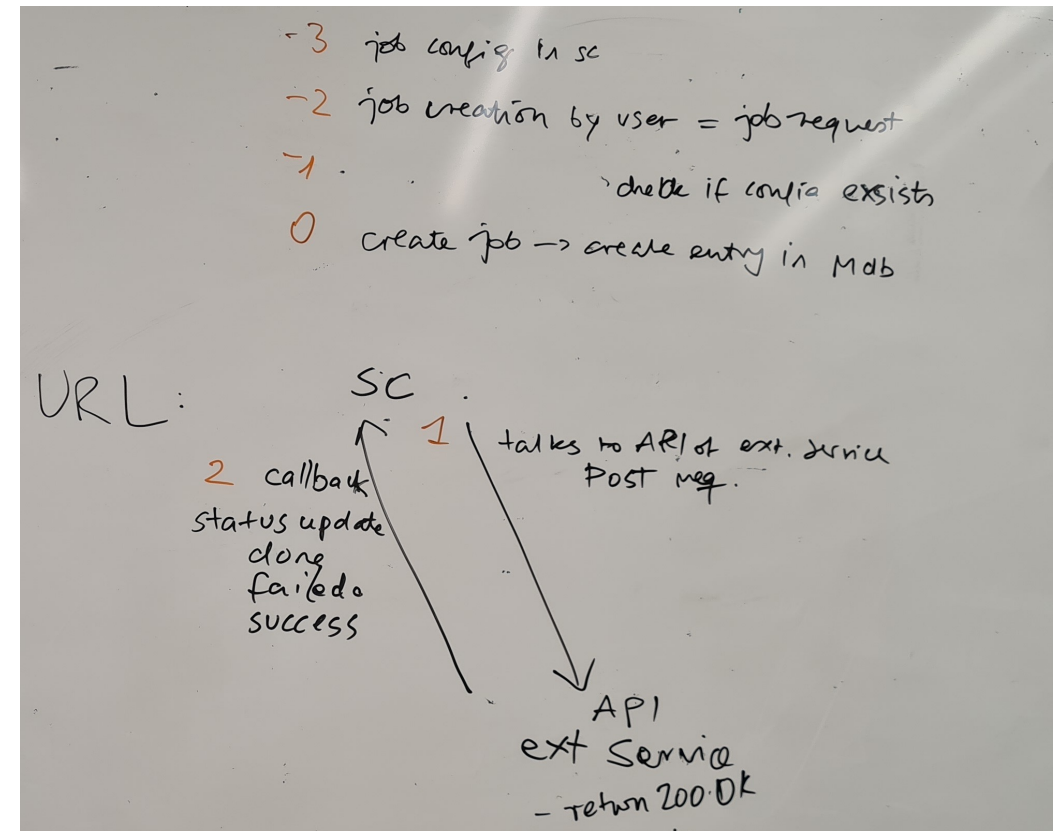 -3 job config in sc
-2 job creation by user = job request
-1
check if config exsists
0 create job -> create entry in Mdb
URL:
SC
1 talks to API of ext. service
Post req.
2 callback
status update
done
failed
success
API
ext Service
- return 200.OK